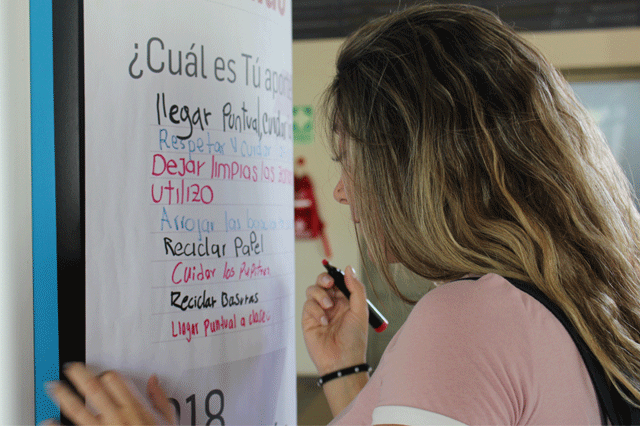 ¿Cuál es Tú aporte
llegar Puntual, cuidar
Respetar y cuidar
Dejar limpias las
utilizo
Arrojar las
Reciclar Papel
Cuidar los Pupitres
Reciclar Basuras
Llegar puntual a clase.
018